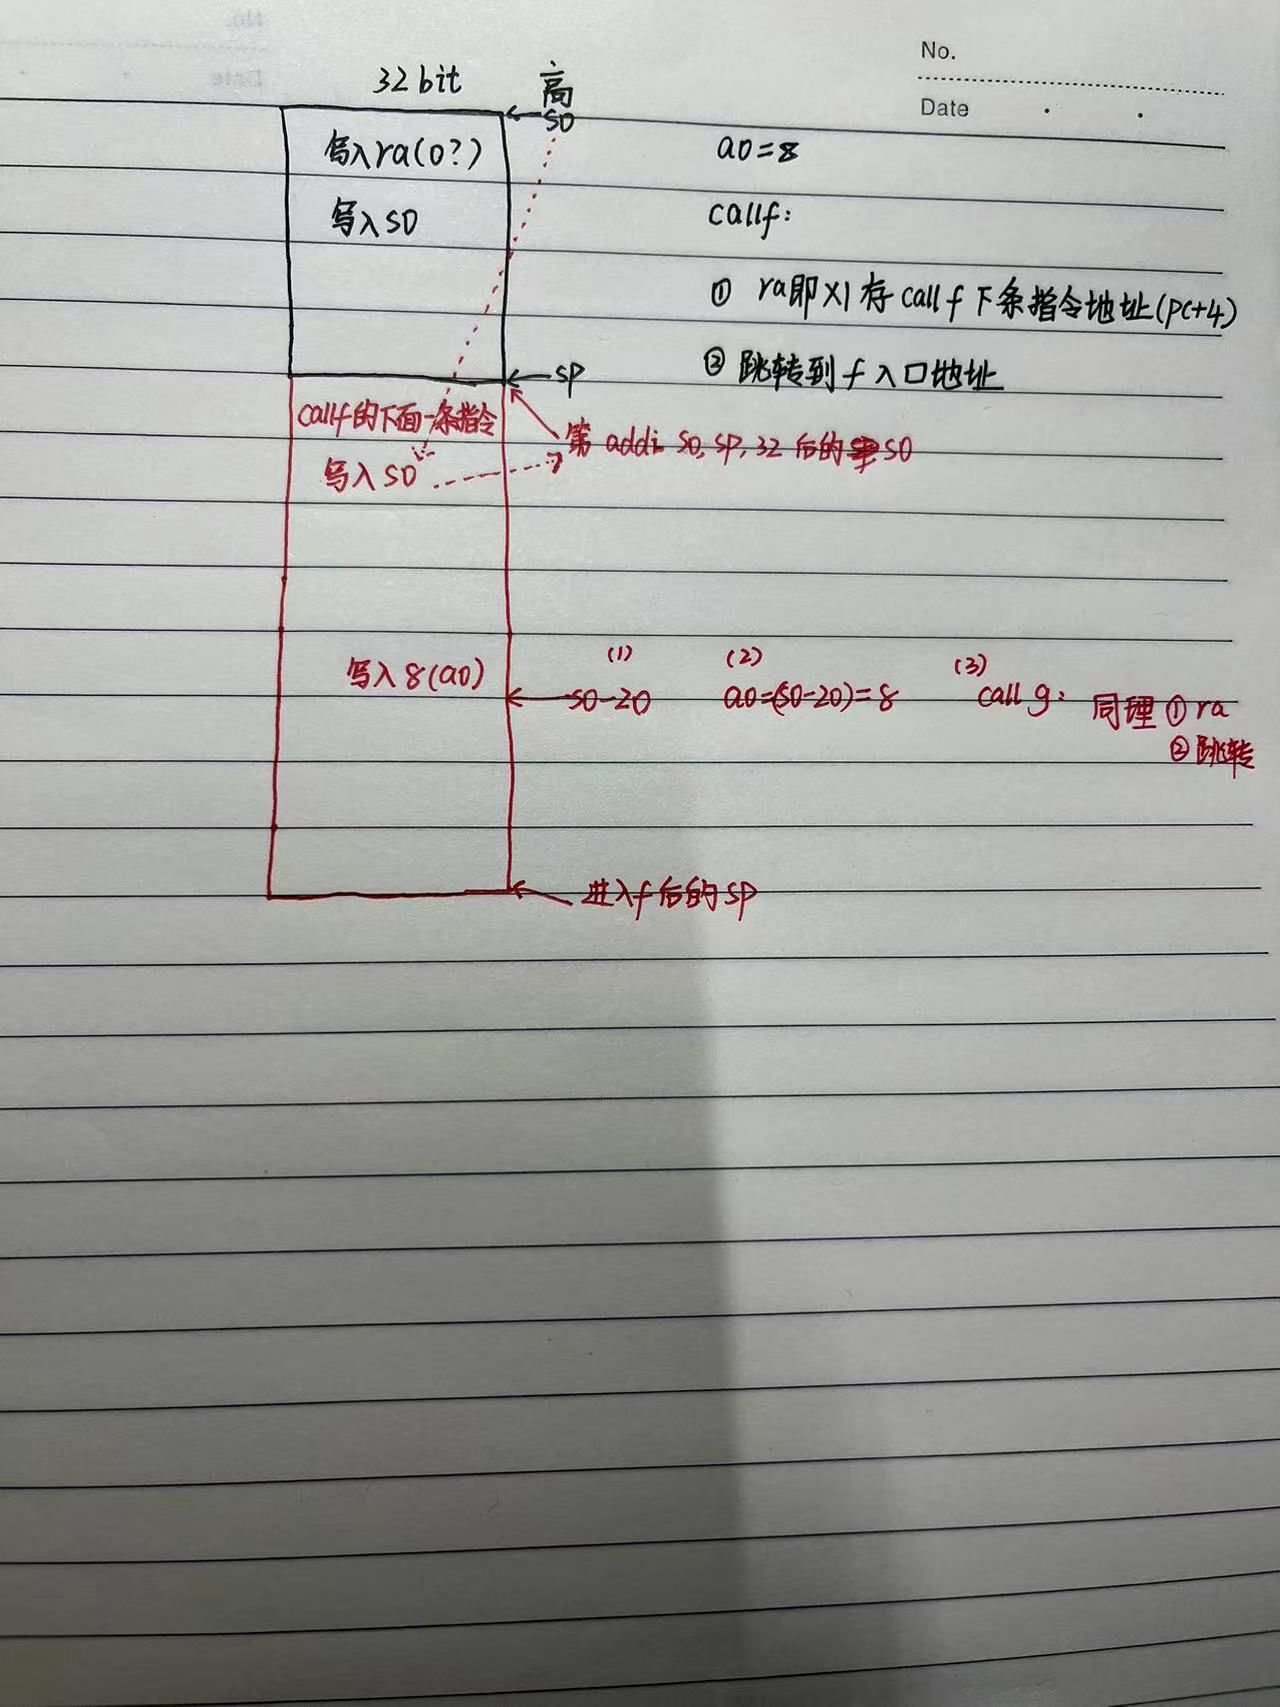 No.
Date
32 bit
高
s0
写入ra(0?)
a0=8
写入s0
call f:
① ra即x1存call f下条指令地址(pc+4)
sp
② 跳转到f入口地址
call f的下面一条指令
第 addi s0, sp, 32 后的 s0
写入s0
(1) (2) (3)
写入8(a0)
s0-20 a0=(s0-20)=8 call g: 同理 ① ra
② 跳转
进入f后的sp